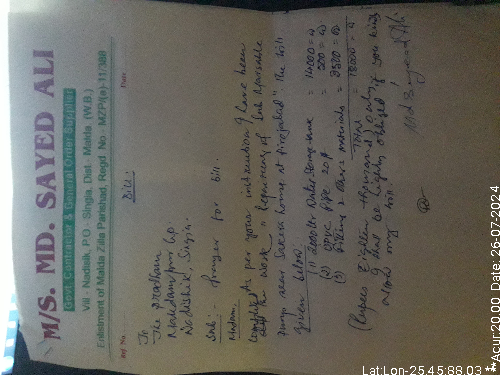 M/S. MD. SAYED ALI
Govt. Contractor & General Order Supplier
Vill - Nadisik, P.O - Singia, Dist - Malda, (W.B.)
Enlistment of Malda Zilla Parishad, Regd. No - MZP/(e)-11/388
Ref. No Date
Bill
To
The Pradhan
Makdampur G.P.
Nadisik, Singia.
Sub:- Prayer for bill.
Madam,
As per your instruction I have been
completed the work "Repairing of Sub Mersable
Pump near house at The bill
given below
(1) 2000 Ltr Water = 14000 = 00
(2) UPVC Pipe 20 ft = 500 = 00
(3) Fitting & others materials = 3500 = 00
Total = 18000 = 00
(Rupees Eighteen thousand) only
I shall be highly obliged if you kindly
my bill.
Md Sayed Ali
Lat:Lon-25.45:88.03
**Acur:20.00 Date:26-07-2024